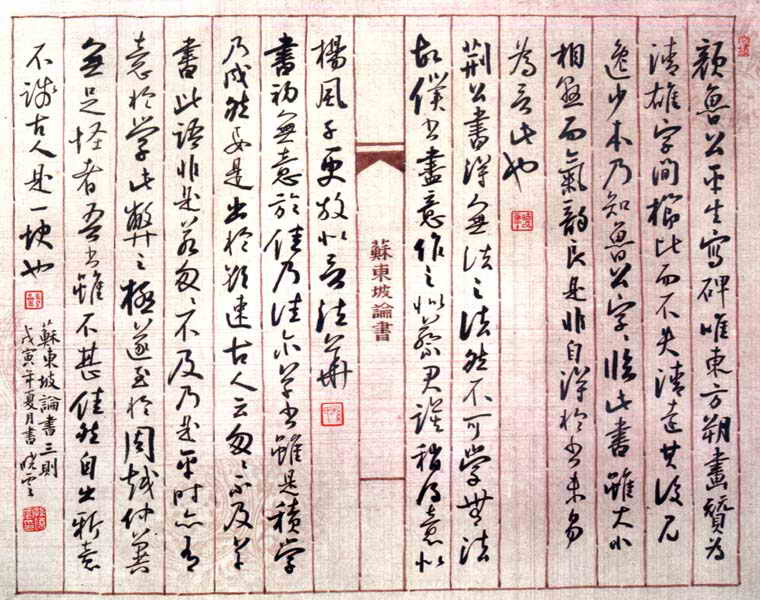 顏魯公平生寫碑唯東方朔畫贊為
清雄字间櫛比而不失清遠其後見
逸少本乃知魯公字〻臨此書雖大小
相懸而氣韻良是非自得於書未易
為言此也
荆公書得無法之法然不可學無法
故僕書盡意作之似蔡君謨稍得意似
蘇東坡論書
楊風子更放似言法華
書初無意於佳乃佳尔草書雖是積學
乃成然要是出於欲速古人云匆〻不及草
書此語非是若匆〻不及乃是平時亦有
意於學此弊之極遂至於周越仲翼
無足怪者吾書雖不甚佳然自出新意
不踐古人是一快也
蘇東坡論書三則
戊寅年夏月書曉雲